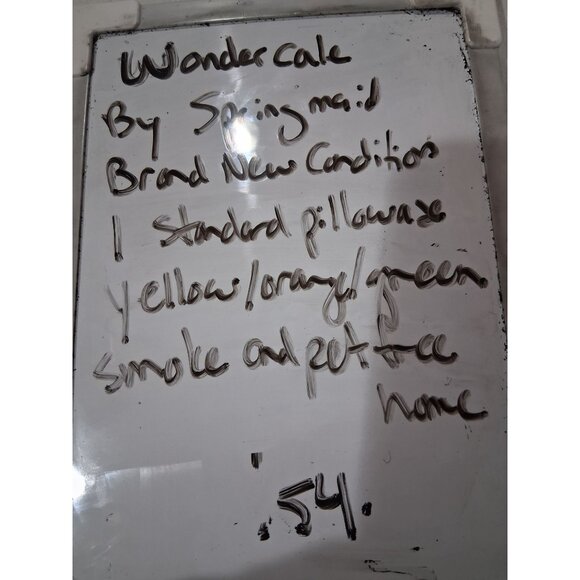 Wondercale
By Springmaid
Brand New Condition
1 Standard pillowcase
yellow/orange/green
smoke and pet free
home
.54.